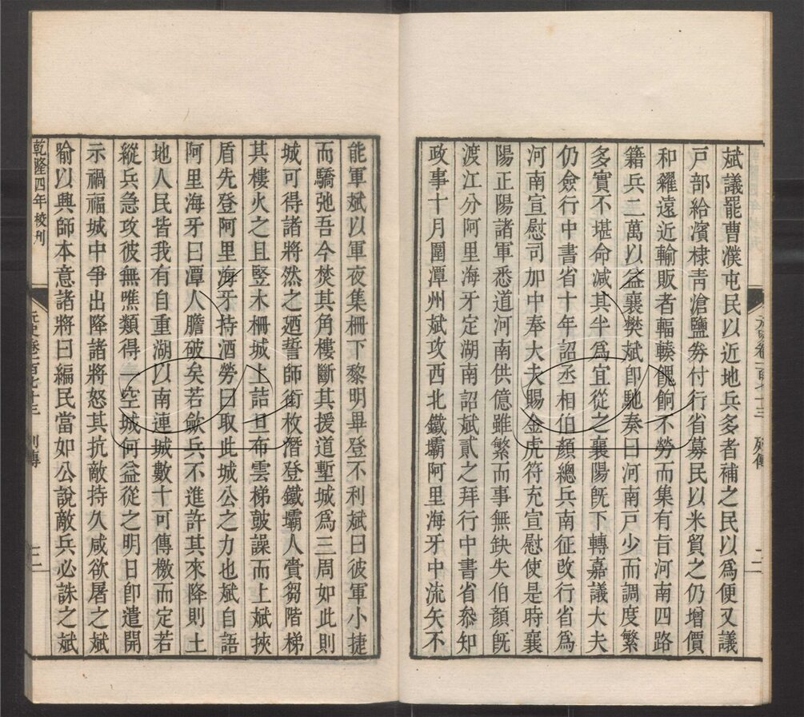 斌議罷曹濮屯民以近地兵多者補之民以爲便又議
戸部給濱棣靑滄鹽劵付行省募民以米貿之仍增價
和糴遠近輸販者輻輳餽餉不勞而集有旨河南四路
籍兵二萬以益襄樊斌卽馳奏曰河南戸少而調度繁
多實不堪命減其半爲宜從之襄陽旣下轉嘉議大夫
仍僉行中書省十年詔丞相伯顏總兵南征改行省爲
河南宣慰司加中奉大夫賜金虎符充宣慰使是時襄
陽正陽諸軍悉道河南供億雖繁而事無缺失伯顏旣
渡江分阿里海牙定湖南詔斌貳之拜行中書省參知
政事十月圍潭州斌攻西北鐵壩阿里海牙中流矢不
元史卷一百七十三 列傳 二
能軍斌以軍夜集柵下黎明畢登不利斌曰彼軍小捷
而驕弛吾今焚其角樓斷其援道塹城爲三周如此則
城可得諸將然之廼誓師銜枚潛登鐵壩人賫芻階梯
其樓火之且竪木柵城上詰旦布雲梯鼓譟而上斌挾
盾先登阿里海牙持酒勞曰取此城公之力也斌自語
阿里海牙曰潭人膽破矣若歛兵不進許其來降則土
地人民皆我有自重湖以南連城數十可傳檄而定若
縱兵急攻彼無噍類得一空城何益從之明日卽遣開
示禍福城中爭出降諸將怒其抗敵持久咸欲屠之斌
喻以興師本意諸將曰編民當如公說敵兵必誅之斌
乾隆四年校刊
元史卷一百七十三 列傳